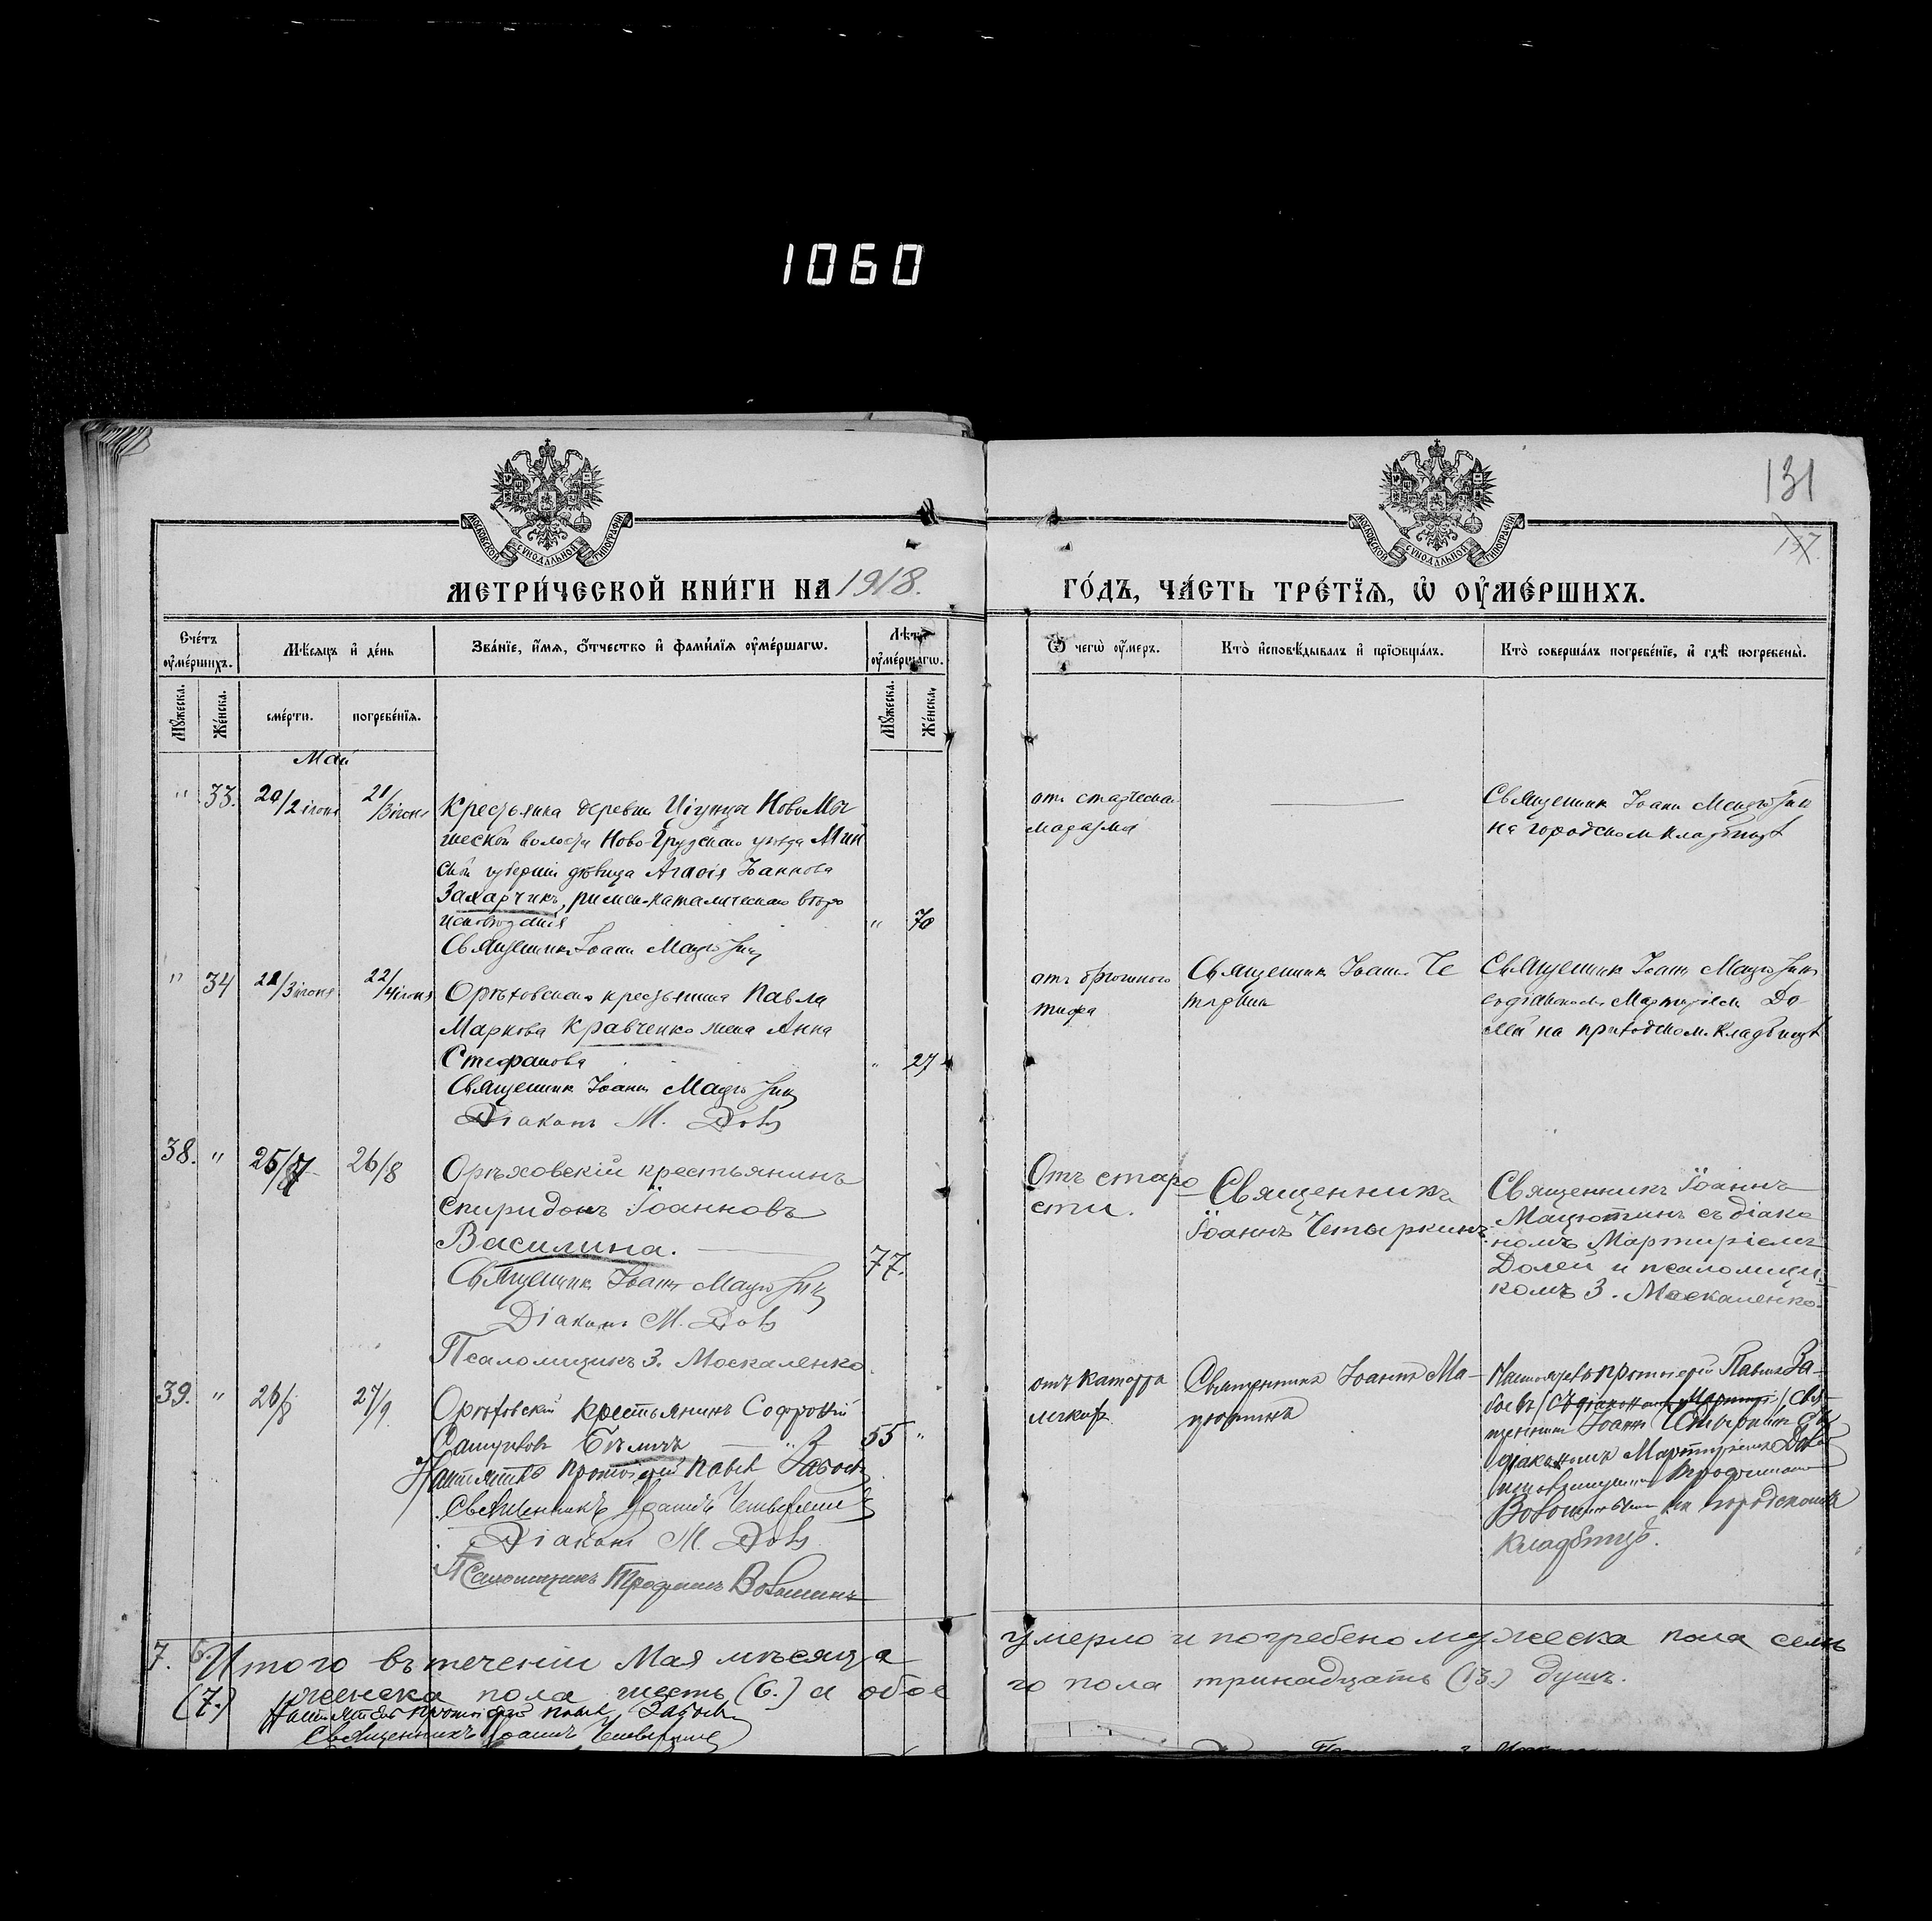 1060
131
137
МЕТРИ́ЧЕСКОЙ КНИ́ГИ НА 1918.
ГО́ДЪ, ЧА́СТЬ ТРЕ́ТЇѦ, Ѡ҆ ОУ҆МЕ́РШИХЪ.
Сче́тъ оу҆ме́ршихъ.
Мѣ́сяцъ и҆ де́нь
Зва́нїе, и҆́мѧ, ѻ҆́тчество и҆ фами́лїѧ оу҆ме́ршагѡ.
Лѣ́та оу҆ме́ршагѡ.
Ѿ чегѡ̀ оу҆́меръ.
Кто̀ и҆сповѣ́дывалъ и҆ прїѻбща́лъ.
Кто̀ соверша́лъ погребе́нїе, и҆ гдѣ̀ погребены̀.
Мꙋ́жеска.
Же́нска.
сме́рти.
погребе́нїѧ.
Мꙋ́жеска.
Же́нска.
Май
" 33. 20/2 іюня 21/3 іюня
Крестьянка деревни
волости Ново-Грудскаго уѣзда Мин
ской губерніи дѣвица Агафія Іоаннова
Захарчикъ, римск-католическаго вѣро
исповѣданія " 70
Священникъ Іоаннъ Мацютинъ
отъ старческаго
маразма
Священник Іоанн Мацютин
на городском кладбищѣ
" 34 21/3 іюня 22/4 іюня
Орѣховскаго крестьянина Павла
Маркова Кравченко жена Анна
Стефанова " 27
Священник Іоанн Мацютин
Діаконъ М. Доля
отъ брюшного
тифа
Священник Іоанн Че
тыркин
Священник Іоанн Мацютин
с діакономъ Мартиріем До
лей на приходском кладбищѣ
38. " 25/7 26/8
Орѣховскій крестьянинъ
Спиридонъ Іоанновъ
Василина. 77.
Священник Іоанн Мацютин
Діаконъ М. Доля
Псаломщикъ З. Москаленко
Отъ старо
сти.
Священникъ
Іоаннъ Четыркинъ.
Священникъ Іоаннъ
Мацютинъ съ діако
номъ Мартиріемъ
Долей и псаломщи
комъ З. Москаленко.
39. " 26/8 27/9
Орѣховскій крестьянинъ Софроній
Бѣликъ 55 "
Настоятель Протоіерей Павелъ
Священникъ Іоаннъ Четыркинъ
Діаконъ М. Доля
Псаломщикъ Трофимъ Волошинъ
отъ катарра
легкихъ
Священникъ Іоаннъ Ма-
цютинъ
Настоятель протоіерей Павелъ За-
(съ діакономъ Мартиріем) Свя-
щенникъ Іоаннъ Четыркинъ съ
діакономъ Мартиріемъ Долей
псаломщикомъ Трофимомъ
на городскомъ
кладбищѣ.
7. 6. Итого въ теченіи Мая мѣсяца умерло и погребено мужеска пола семь
(7.) женска пола шесть (6.) а обое го пола тринадцать (13.) душъ.
Настоятель протоіерей Павелъ
Священникъ Іоаннъ Четыркинъ